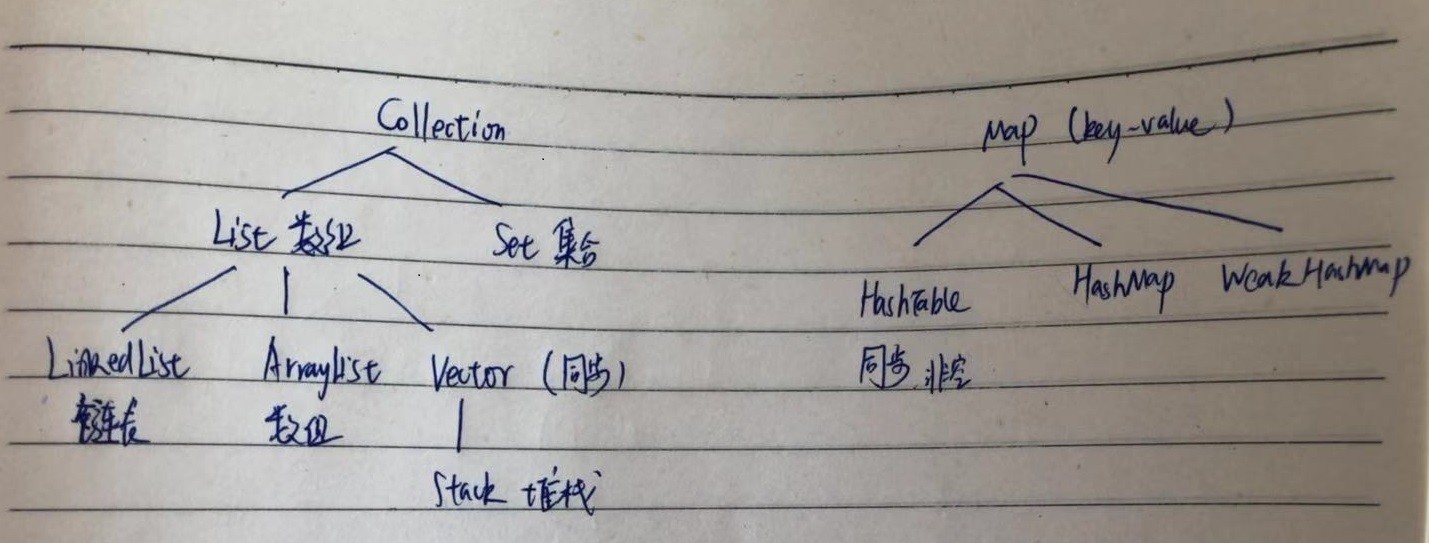 Collection
Map (key-value)
List 数组
Set 集合
HashTable
HashMap
WeakHashMap
LinkedList
ArrayList
Vector (同步)
同步 非空
链表
数组
Stack 堆栈